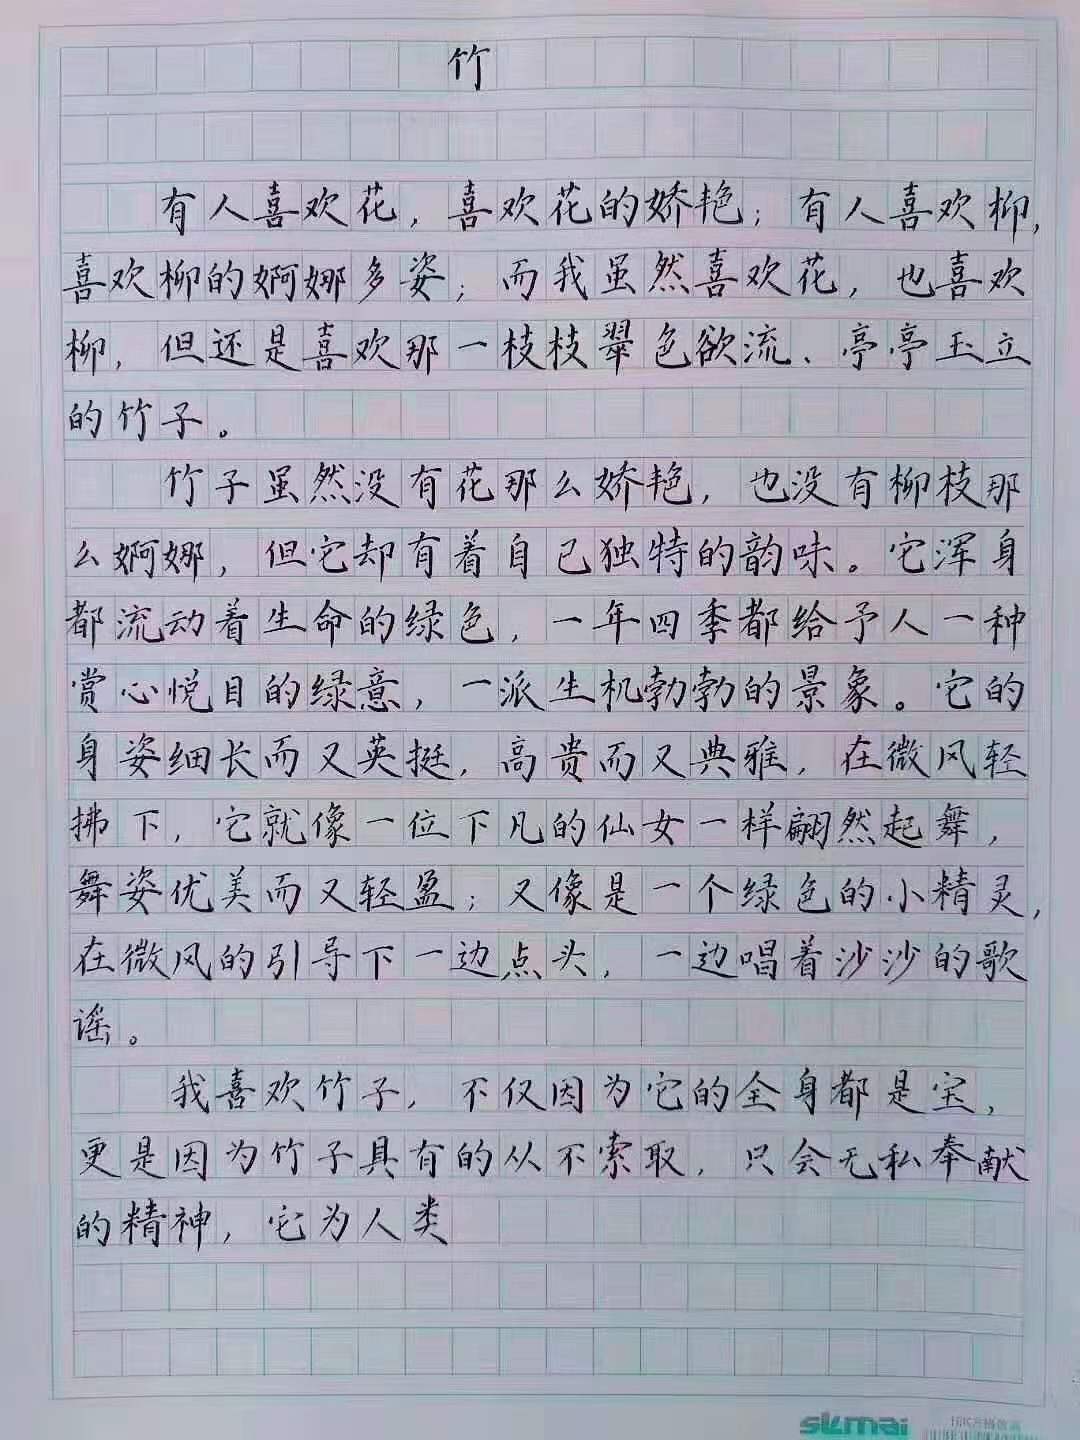 竹
有人喜欢花，喜欢花的娇艳；有人喜欢柳，
喜欢柳的婀娜多姿；而我虽然喜欢花，也喜欢
柳，但还是喜欢那一枝枝翠色欲流、亭亭玉立
的竹子。
竹子虽然没有花那么娇艳，也没有柳枝那
么婀娜，但它却有着自己独特的韵味。它浑身
都流动着生命的绿色，一年四季都给予人一种
赏心悦目的绿意，一派生机勃勃的景象。它的
身姿细长而又英挺，高贵而又典雅，在微风轻
拂下，它就像一位下凡的仙女一样翩然起舞，
舞姿优美而又轻盈；又像是一个绿色的小精灵，
在微风的引导下一边点头，一边唱着沙沙的歌
谣。
我喜欢竹子，不仅因为它的全身都是宝，
更是因为竹子具有的从不索取，只会无私奉献
的精神，它为人类
skmai